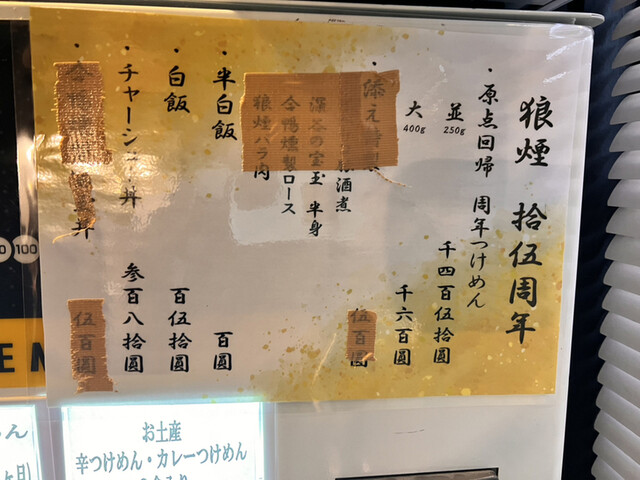 狼煙 拾伍周年
・原点回帰 周年つけめん
並 250g 千四百伍拾圓
大 400g 千六百圓
・添え 伍百圓
酒煮
深谷の宝玉 半身
合鴨燻製ロース
狼煙バラ肉
・半白飯 百圓
・白飯 百伍拾圓
・チャーシュー丼 参百八拾圓
丼 伍百圓
100
EN
お土産
辛つけめん・カレーつけめん